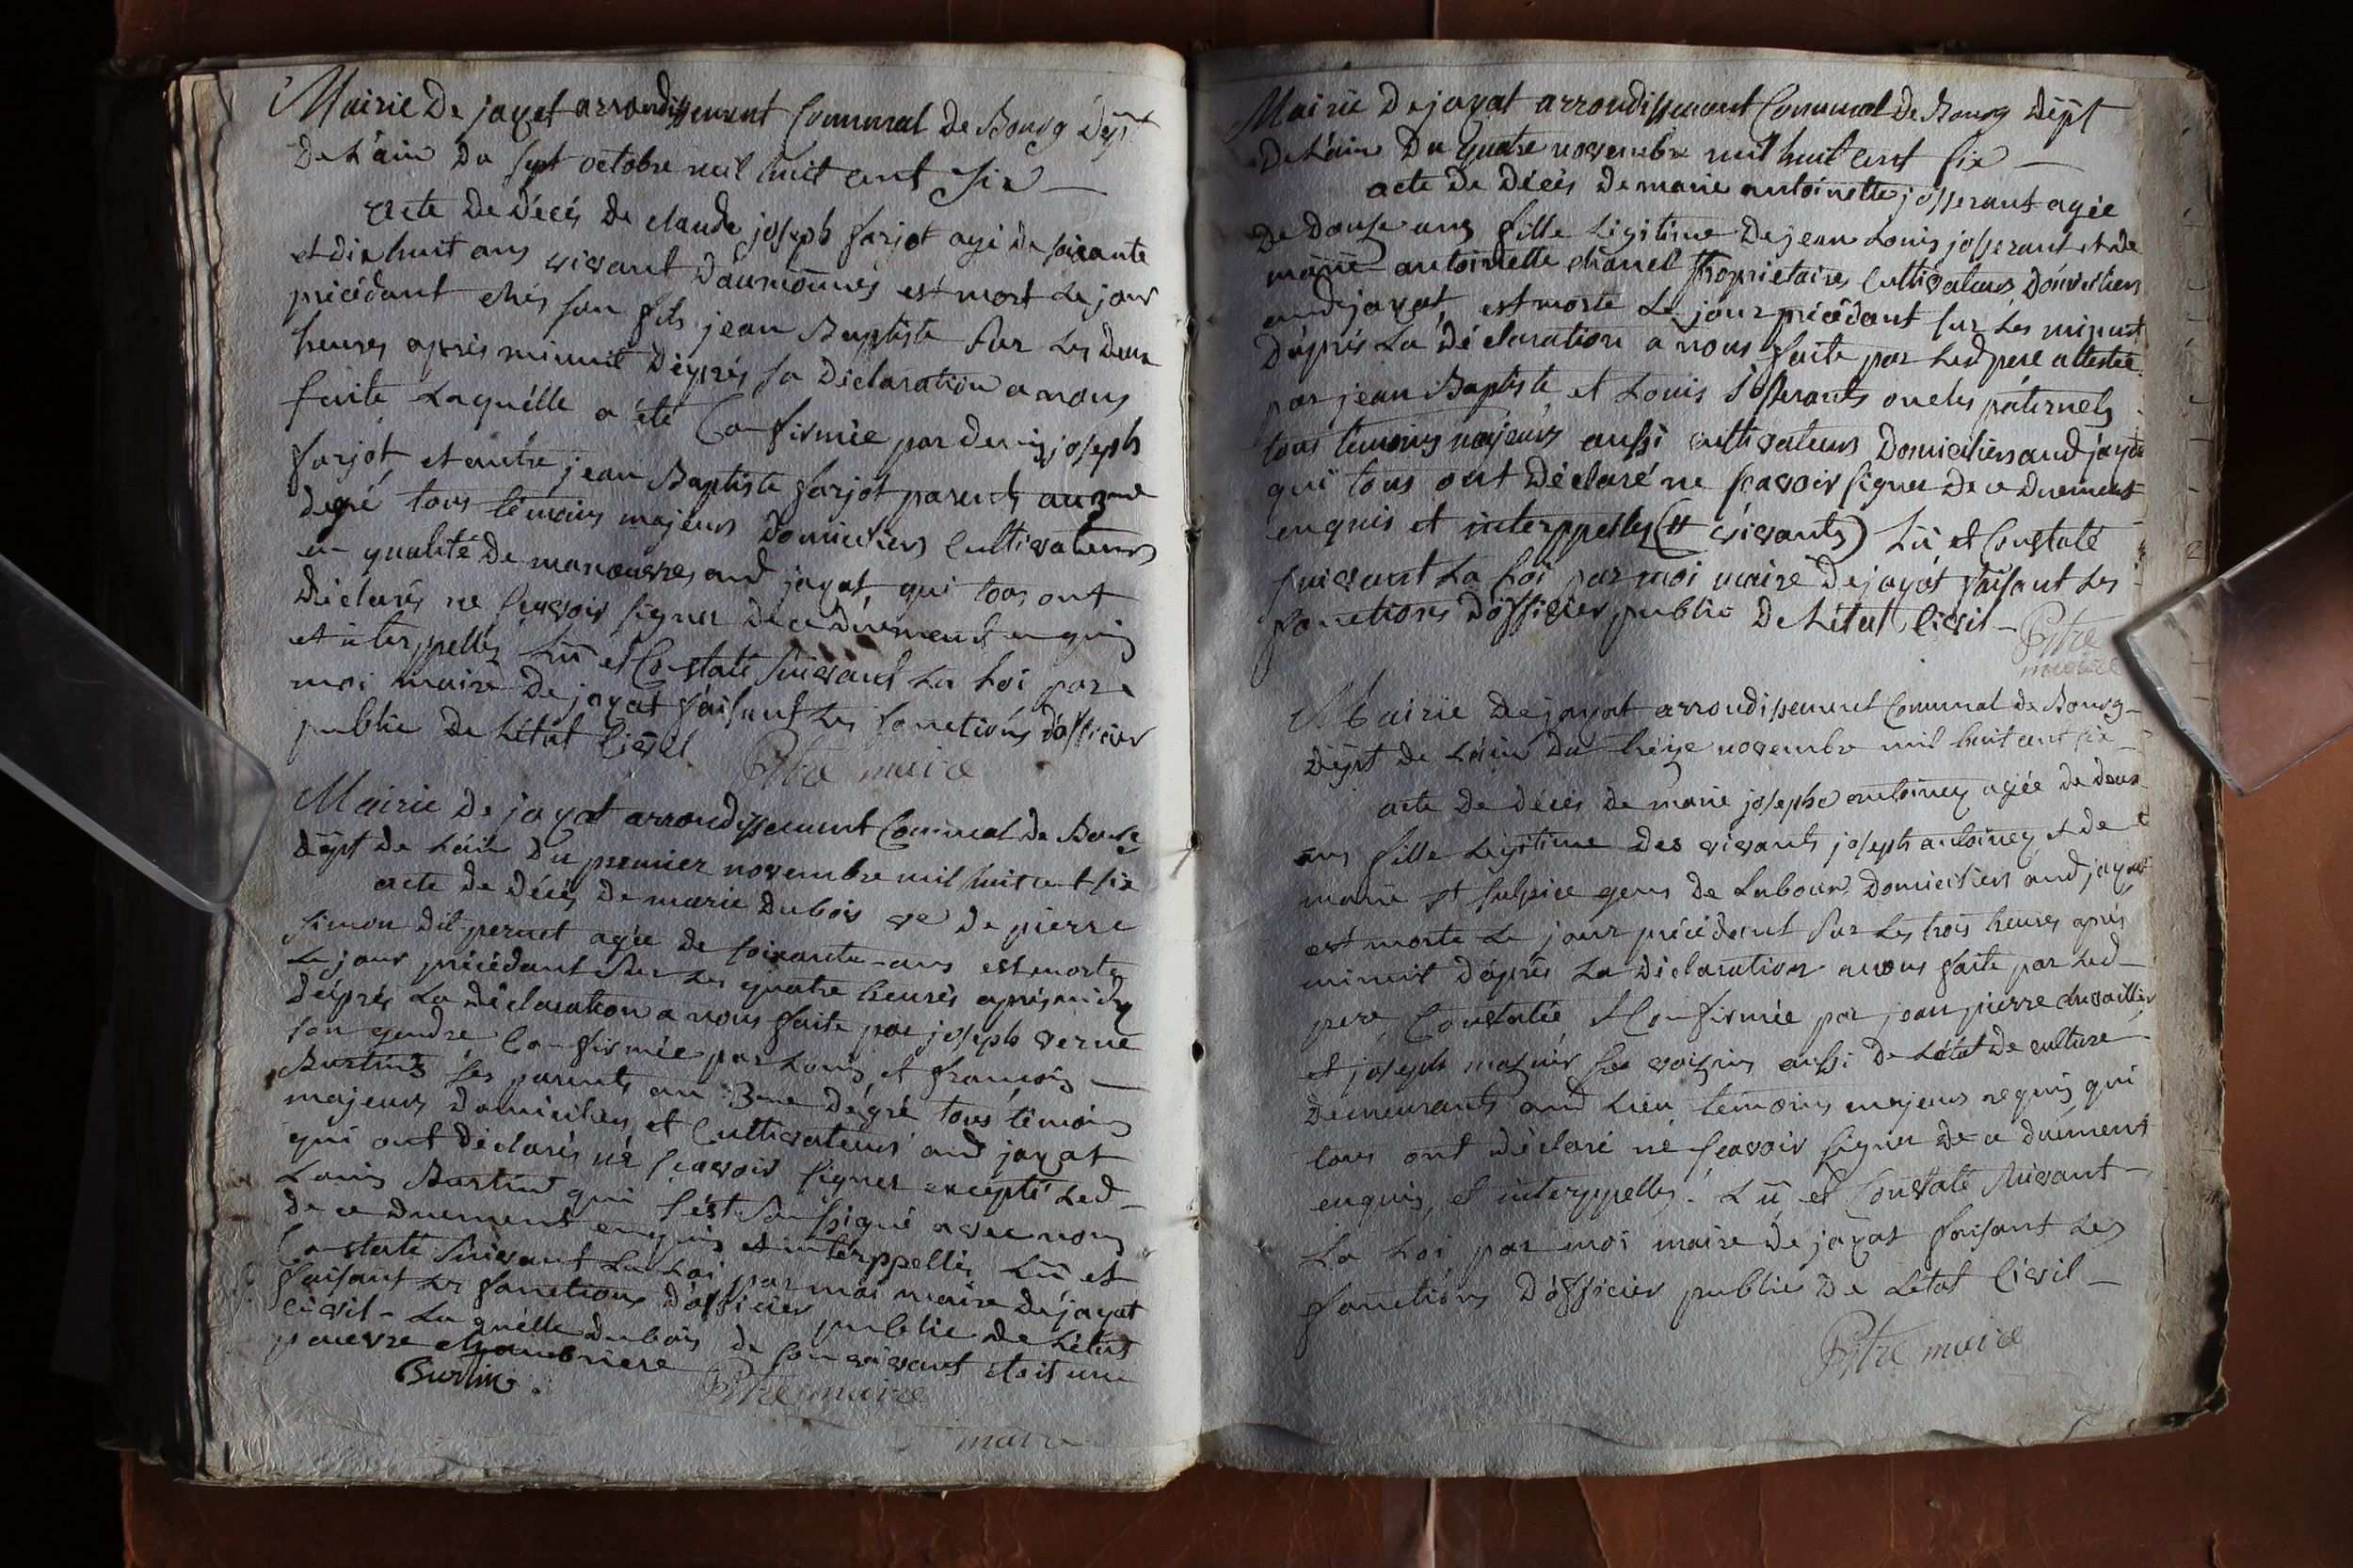 Mairie De jayat arrondissement Communal de Bourg Dépt
De L'ain Du sept octobre mil huit cent six —
acte de décés de claude joseph farjot agé de soixante
et dix huit ans vivant D'aumônnes est mort Le jour
précédant chés son fils jean Baptiste sur Les Deux
heures après minuit D'éprés sa Déclaration a nous
faite Laquélle a été Confirmée par denis joseph
farjot et autre jean Baptiste farjot parents au 3me
degré tous témoins majeurs Domiciliers Cultivateurs
en qualité de manoeuvres aud jayat, qui tous ont
déclarés ne scavoir signer de ce dûement enquis
et interppellés, Lû et Constaté suivant La Loi par
moi maire De jayat faisant Les fonctions d'officier
public de L'état Civil. Pitre maire
Mairie de jayat arrondissement Communal de Bourg
dépt de L'ain Du premier novembre mil huit cent six
acte de Décés De marie Dubois ve De pierre
simon dit pernet agée de soixante-ans est morte
Le jour précédant sur Les quatre heures aprés midy
d'éprés La déclaration a nous faite par joseph verne
son gendre Confirmée par Louis et francois —
Burtins ses parents au 3me dégré tous témoins
majeurs domiciliers et Cultivateurs aud jayat
qui ont déclarés ne scavoir signer excepté Led —
Louis Burtin qui s'est soussigné avec nous
de ce duement enquis et interppellés Lû et
Constaté suivant La Loi par moi maire de jayat
faisant Les fonctions d'officier public de L'état
Civil - Laquélle dubois de son vivant étoit une
pauvre
Burtin. Pitre maire
maire
Mairie De jayat arrondissement Communal De Bourg Dépt
De L'ain Du quatre novembre mil huit cent six —
acte De Décés De marie antoinette josserant agée
De Douse ans fille Légitime De jean Louis josserant et de
marie antoinette chanel propriétaires Cultivateurs Domiciliers
aud jayat, est morte Le jour précédant sur Les minuit
D'éprés La déclaration a nous faite par Led pere attestée
par jean Baptiste et Louis Josserants oncles páternels
tous témoins majeurs aussi cultivateurs Domiciliers aud jayat
qui tous ont Déclaré ne scavoir signer De ce duement
enquis et interppellés (# vivants) Lû et Constaté
suivant La Loi par moi maire De jayat faisant Les
fonctions D'officier public De L'état Civil — Pitre
maire
Mairie De jayat arrondissement Communal de Bourg —
dépt de L'ain Du treize novembre mil huit cent six —
acte De décés de marie josephe antoiney agée de deux
ans fille Légitime Des vivants joseph antoiney et de
marie st sulpice gens de Labour Domiciliers aud jayat
est morte Le jour précédant sur Les trois heures aprés
minuit d'éprés La Déclaration a nous faite par Led —
pere, Constatée & Confirmée par jean pierre
et joseph voisins aussi de L'état de culture
demeurants aud Lieu témoins majeurs réquis qui
tous ont déclaré ne scavoir signer De ce duement
enquis, et interppellés. Lû et Constaté suivant —
La Loi par moi maire De jayat faisant Les
fonctions D'officier public De L'état Civil —
Pitre maire